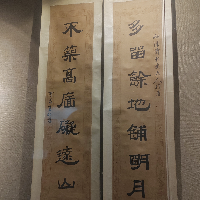 多留餘地鋪明月
不築高牆礙遠山